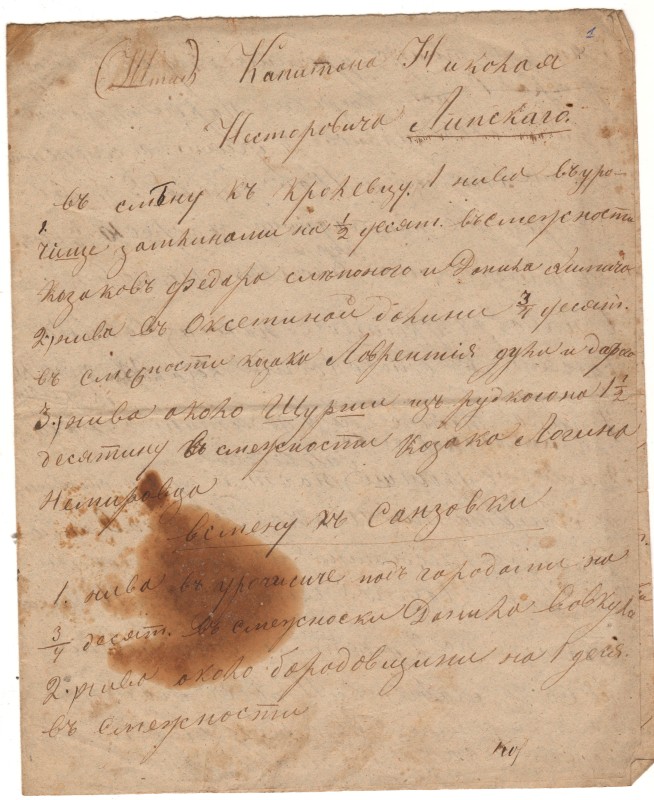 1
(Штабъ Капитана Николая
Несторовича Липскаго.
въ смѣну къ кролевцу. 1 нива въ уро-
чище за млинами на 1/2 десят. въ смежности
Козаковъ Федара слѣпоного и Данила
2, нива въ Оксетиной долини 3/4 десят.
въ смежности козака Лаврентія духа и
3, нива около Щурши изъ рудкого на 1 1/2
десятину въ смежности Козака Логина
Немировца
всмену къ Санзовки
1. нива въ урочисче подъ городами на
3/4 десят. въ смежноски Данила Вовкула
2. нива около бородовщини на 1 деся.
въ смежности